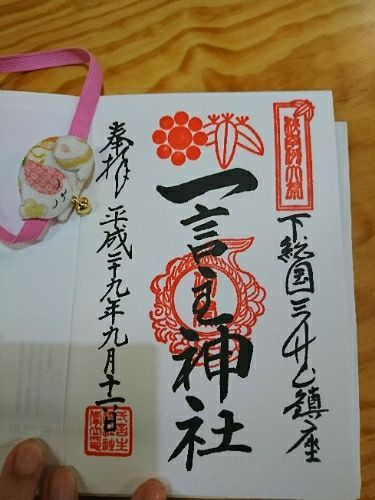 下総国三竹山鎮座
一言主神社
奉拝 平成廿九年九月十二日